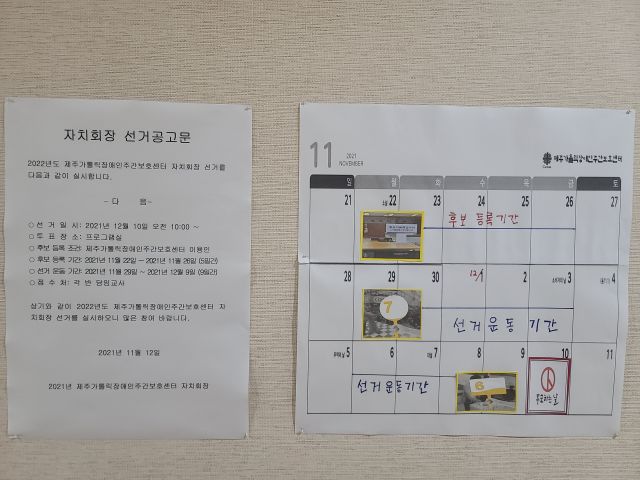 자치회장 선거공고문
2022년도 제주가톨릭장애인주간보호센터 자치회장 선거를
다음과 같이 실시합니다.
- 다 음-
○ 선 거 일 시: 2021년 12월 10일 오전 10:00 ~
○ 투 표 장 소: 프로그램실
○ 후보 등록 조건: 제주가톨릭장애인주간보호센터 이용인
○ 후보 등록 기간: 2021년 11월 22일 ~ 2021년 11월 26일 (5일간)
○ 선거 운동 기간: 2021년 11월 29일 ~ 2021년 12월 9일 (9일간)
○ 접 수 처: 각 반 담임교사
상기와 같이 2022년도 제주가톨릭장애인주간보호센터 자
치회장 선거를 실시하오니 많은 참여 바랍니다.
2021년 11월 12일
2021년 제주가톨릭장애인주간보호센터 자치회장
11 2021
NOVEMBER
일 월 화 수 목 금 토
21 22 23 24 25 26 27
후보 등록기간
28 29 30 12/1 2 3 4
7
선거운동 기간
5 6 7 8 9 10 11
선거운동기간
6
투표하는날